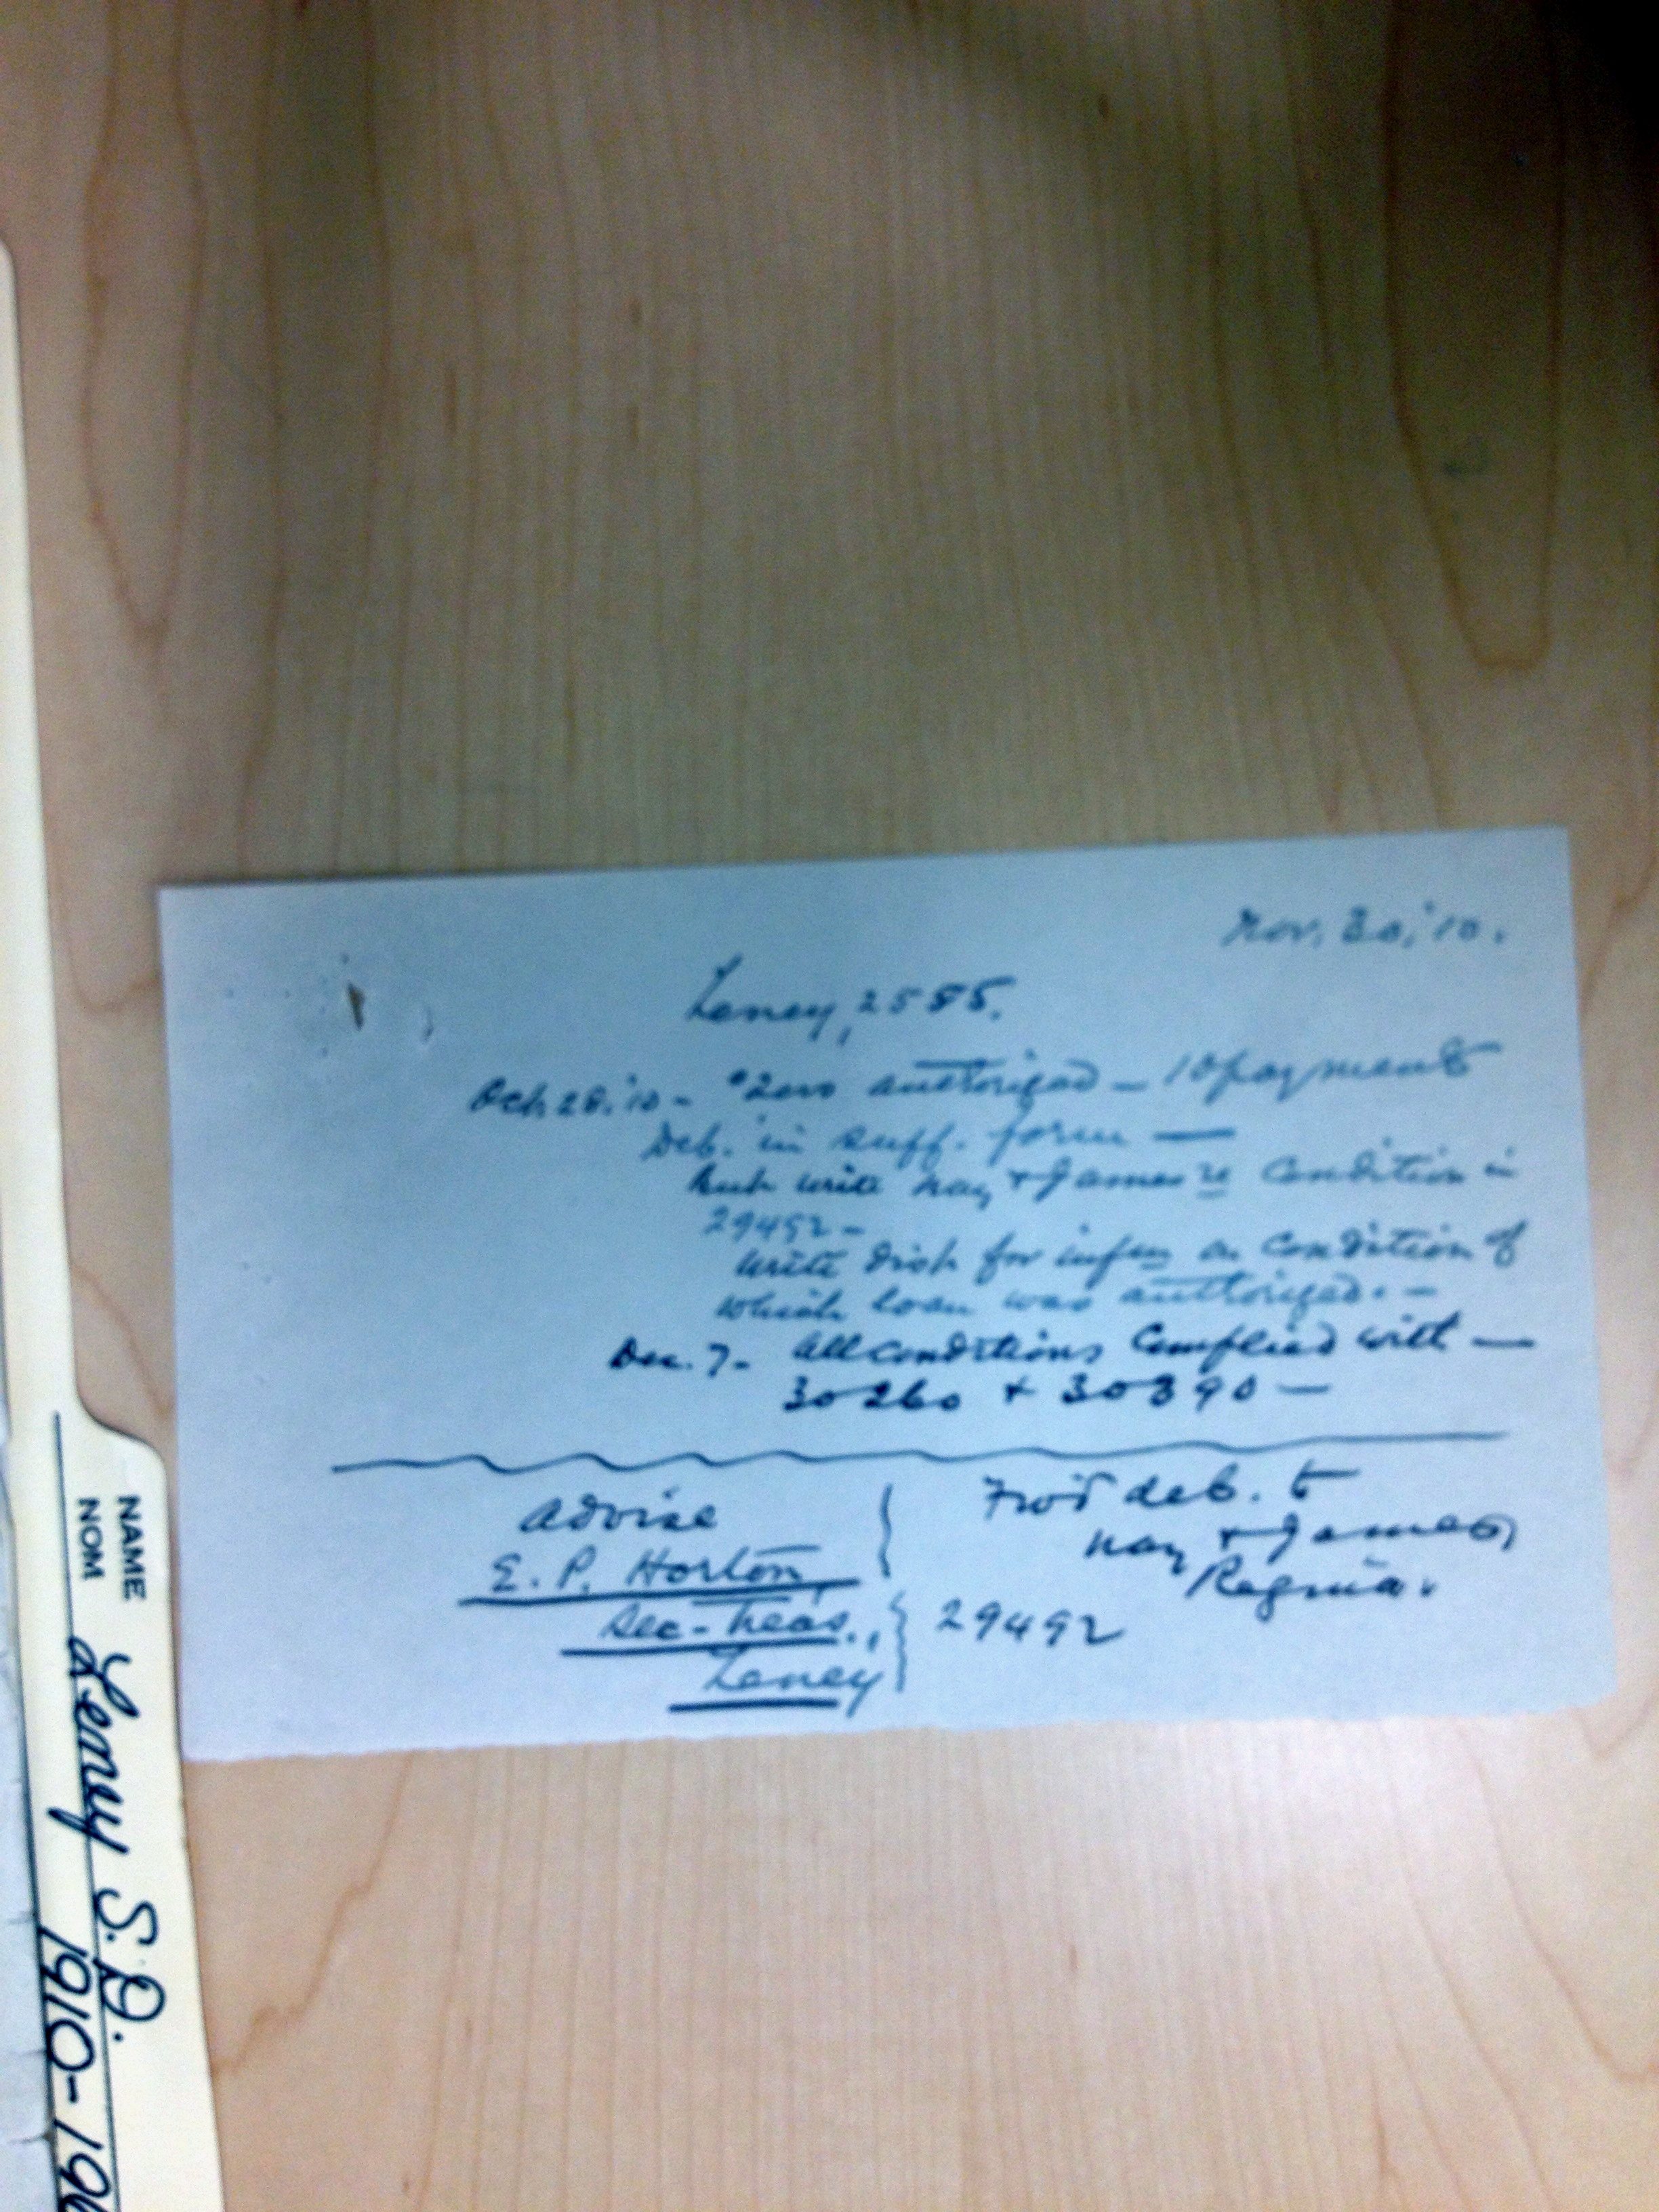 Nov. 30, '10.
Laney, 2585.
Oct. 20. '10 - $2000 authorized - 10 payments
Deb. in suff. form —
But write Nay & James re condition in
29492 -
Write Dist for infmn on condition of
which loan was authorized. -
Dec. 7 - All conditions complied with —
30260 & 30390 —
Advise
E. P. Horton,
Sec-Treas.,
Laney
Fwd deb. to
Nay & James,
Regina.
29492
NAME
NOM
S.D.
1910-19